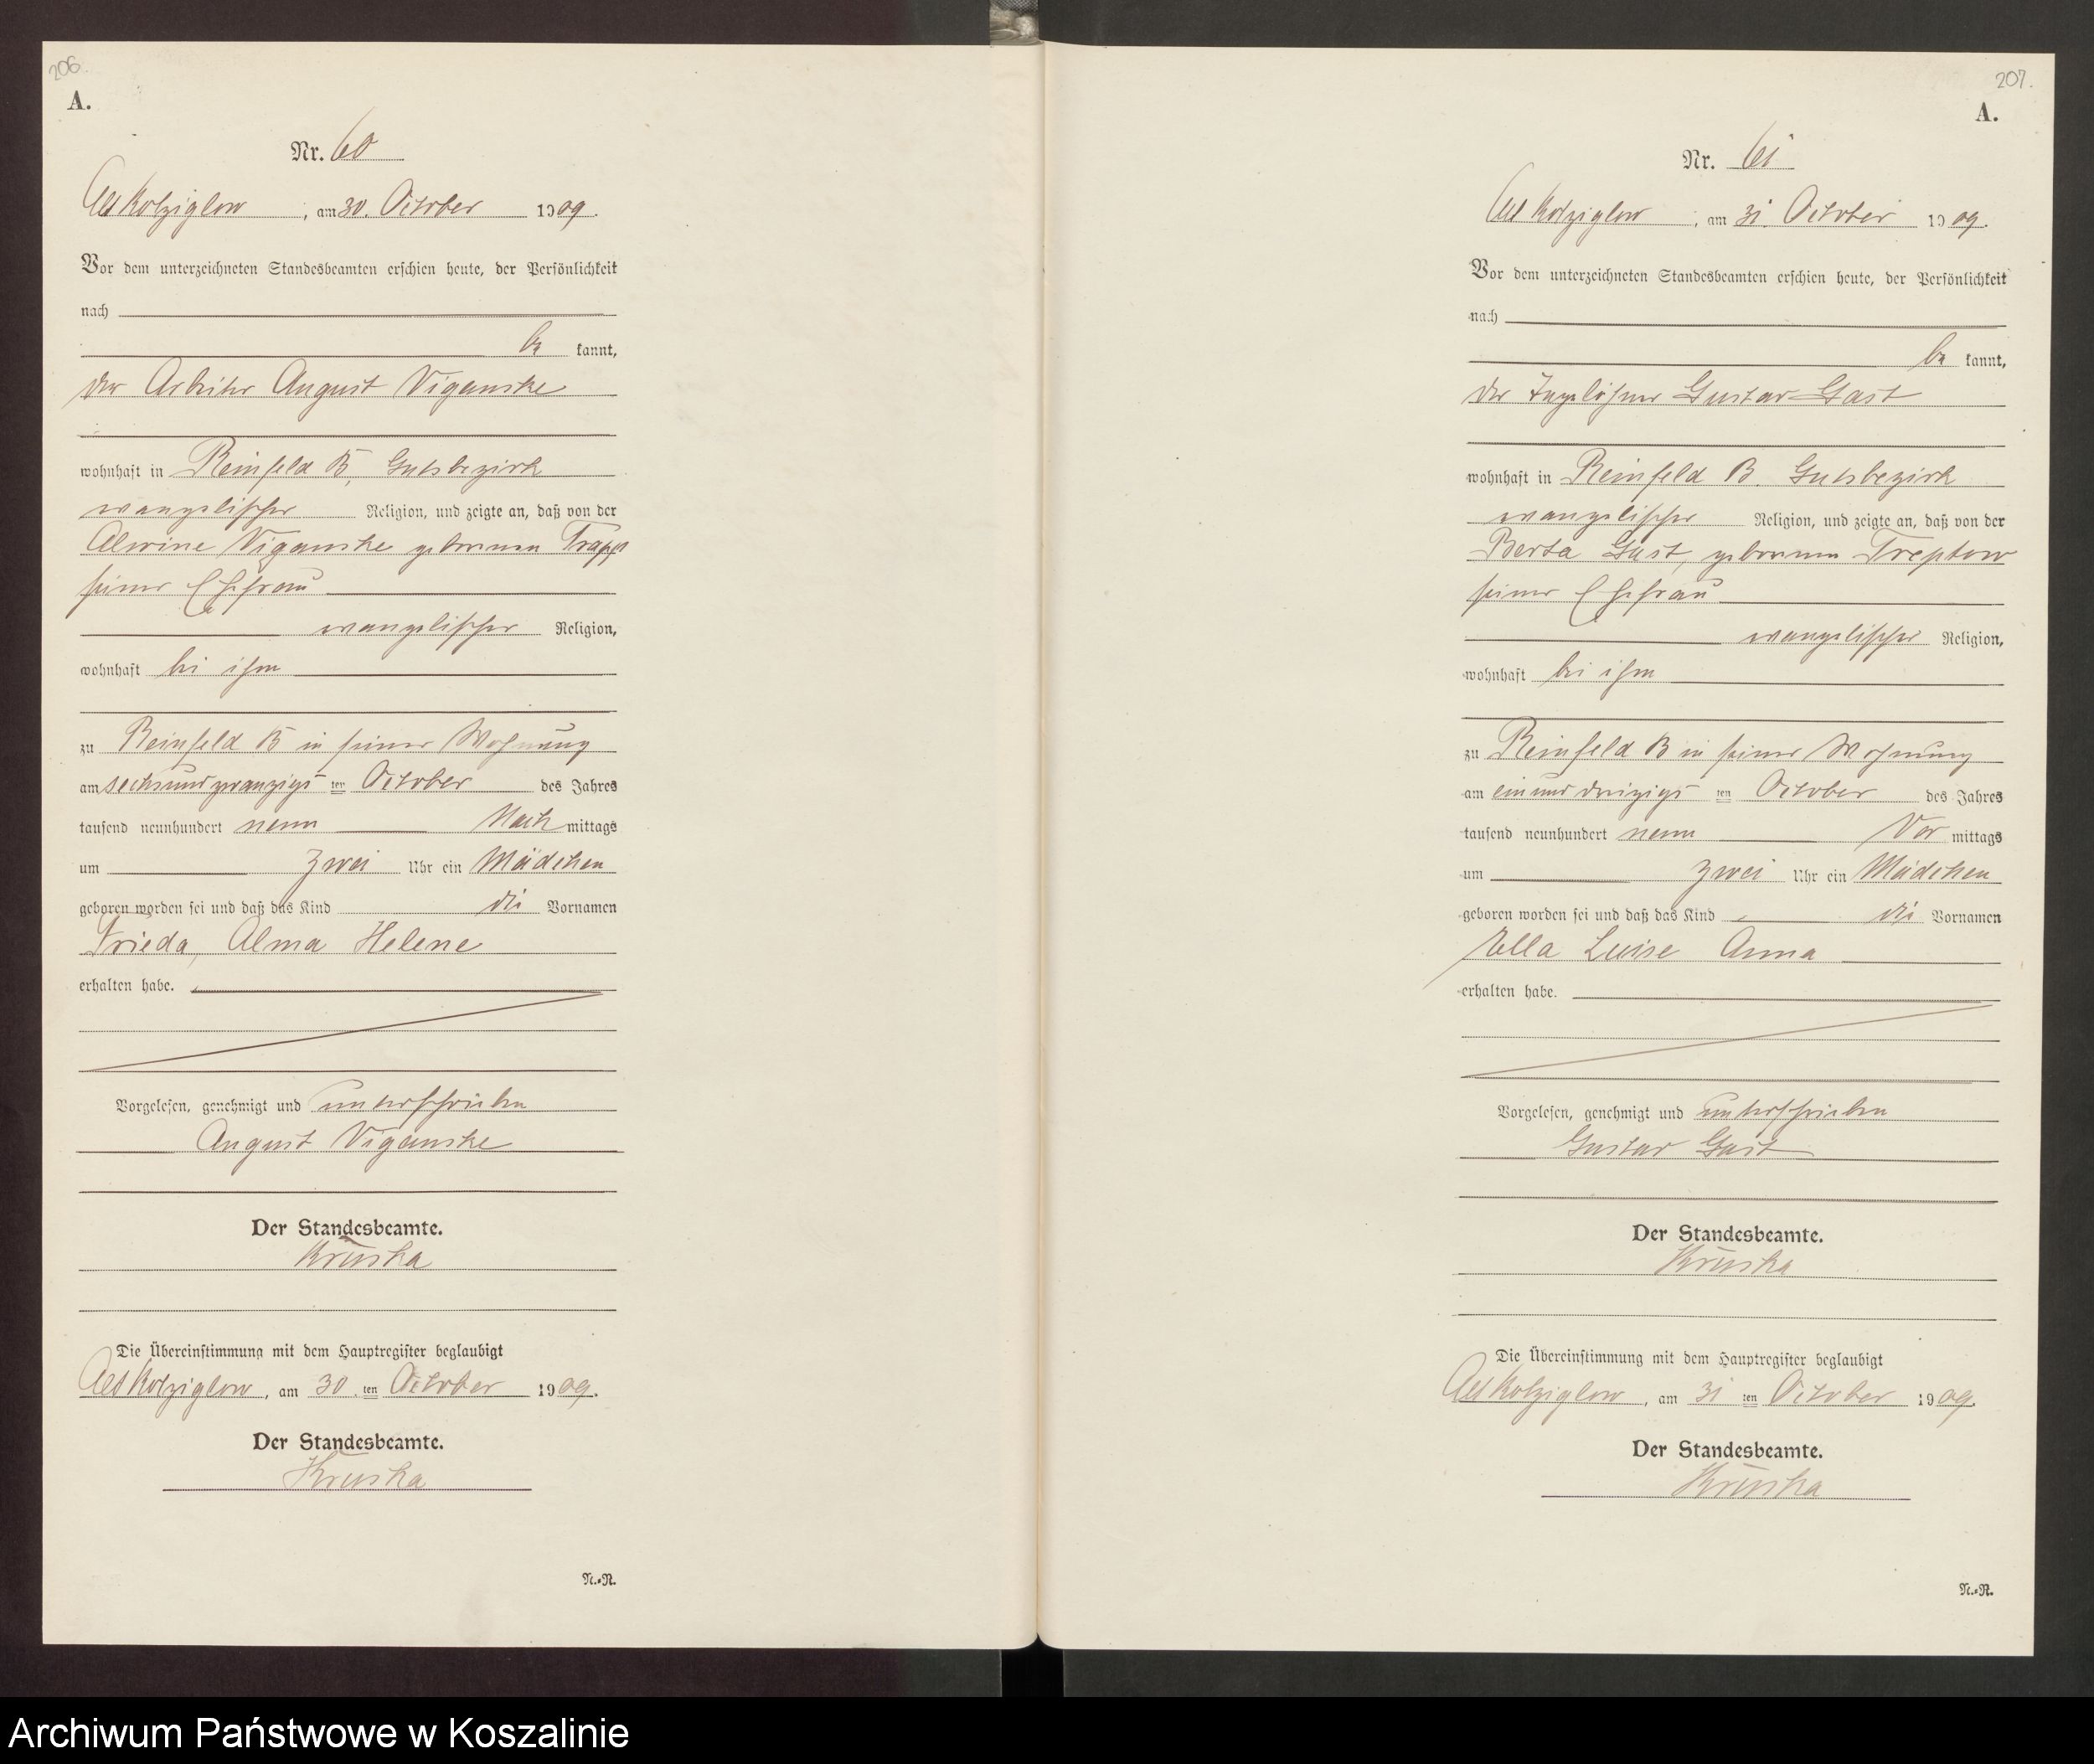 206.
A.
Nr. 60
Alt Kolziglow, am 30. October 1909.
Vor dem unterzeichneten Standesbeamten erschien heute, der Persönlichkeit
nach
be kannt,
der Arbeiter August Viganske
wohnhaft in Reinfeld B, Gutsbezirk
evangelischer Religion, und zeigte an, daß von der
Alwine Viganske geborenen Trapp
seiner Ehefrau
evangelischer Religion,
wohnhaft bei ihm
zu Reinfeld B in seiner Wohnung
am sechsundzwanzigsten October des Jahres
tausend neunhundert neun Nach mittags
um zwei Uhr ein Mädchen
geboren worden sei und daß das Kind die Vornamen
Frieda, Alma Helene
erhalten habe.
Vorgelesen, genehmigt und unterschrieben
August Viganske
Der Standesbeamte.
Kruska
Die Übereinstimmung mit dem Hauptregister beglaubigt
Alt Kolziglow, am 30.ten October 1909.
Der Standesbeamte.
Kruska
N.-R.
207.
A.
Nr. 61
Alt Kolziglow, am 31. October 1909.
Vor dem unterzeichneten Standesbeamten erschien heute, der Persönlichkeit
nach
be kannt,
der Tagelöhner Gustav Gast
wohnhaft in Reinfeld B. Gutsbezirk
evangelischer Religion, und zeigte an, daß von der
Berta Gast, geborenen Treptow
seiner Ehefrau
evangelischer Religion,
wohnhaft bei ihm
zu Reinfeld B in seiner Wohnung
am einunddreizigsten October des Jahres
tausend neunhundert neun Vor mittags
um zwei Uhr ein Mädchen
geboren worden sei und daß das Kind die Vornamen
Ella Luise Anna
erhalten habe.
Vorgelesen, genehmigt und unterschrieben
Gustav Gast
Der Standesbeamte.
Kruska
Die Übereinstimmung mit dem Hauptregister beglaubigt
Alt Kolziglow, am 31 ten October 1909.
Der Standesbeamte.
Kruska
N.-R.
Archiwum Państwowe w Koszalinie